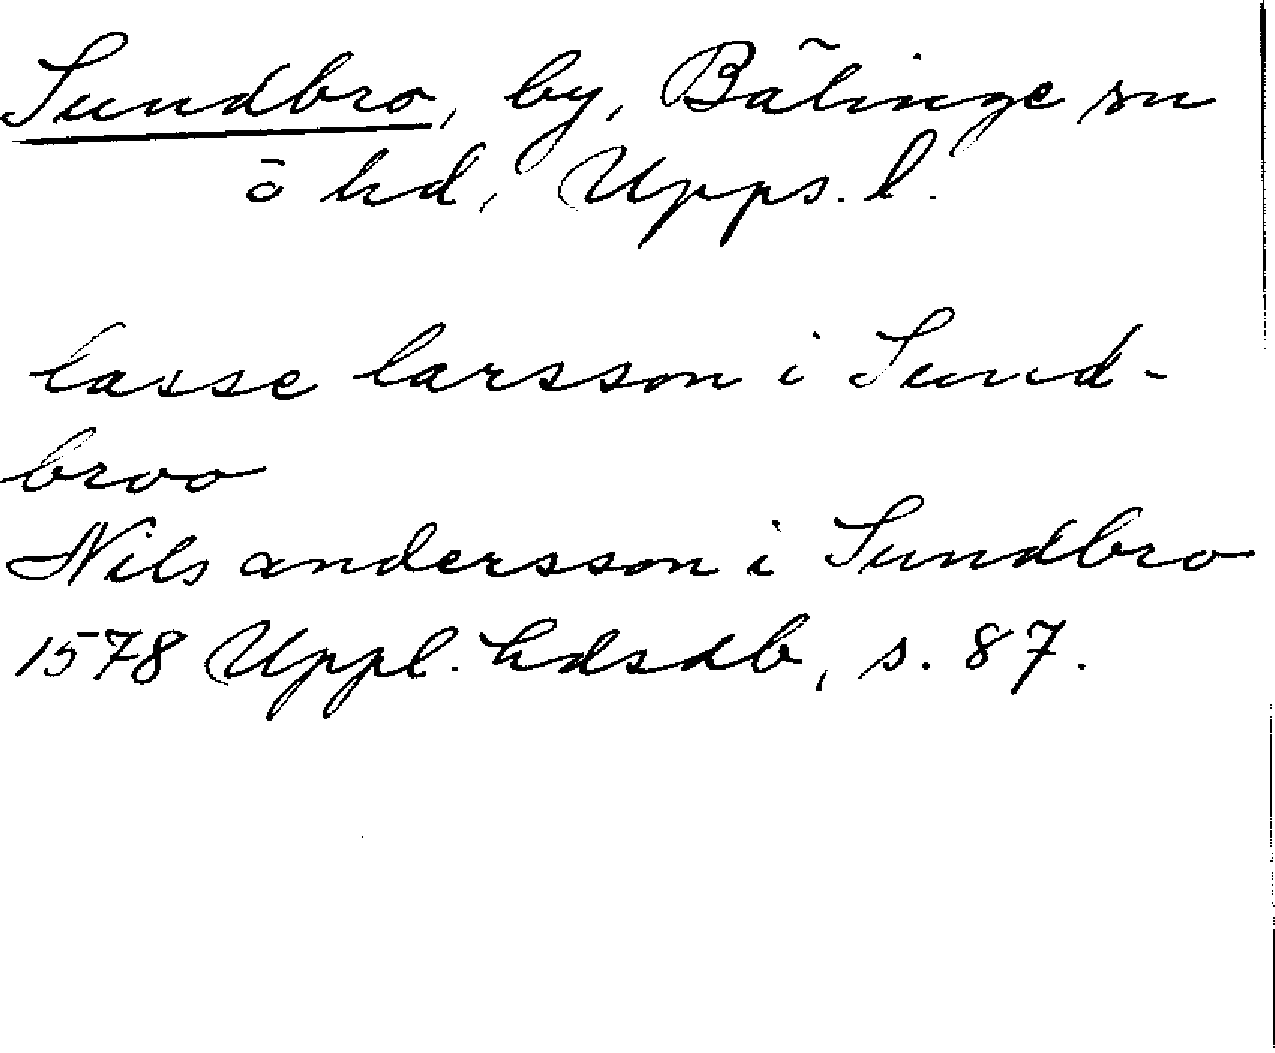 Sundbro, by, Bälinge sn
o hd, Upps. l.
lasse larsson i Sund-
broo
Nils andersson i Sundbro
1578 Uppl. hdsdb, s. 87.